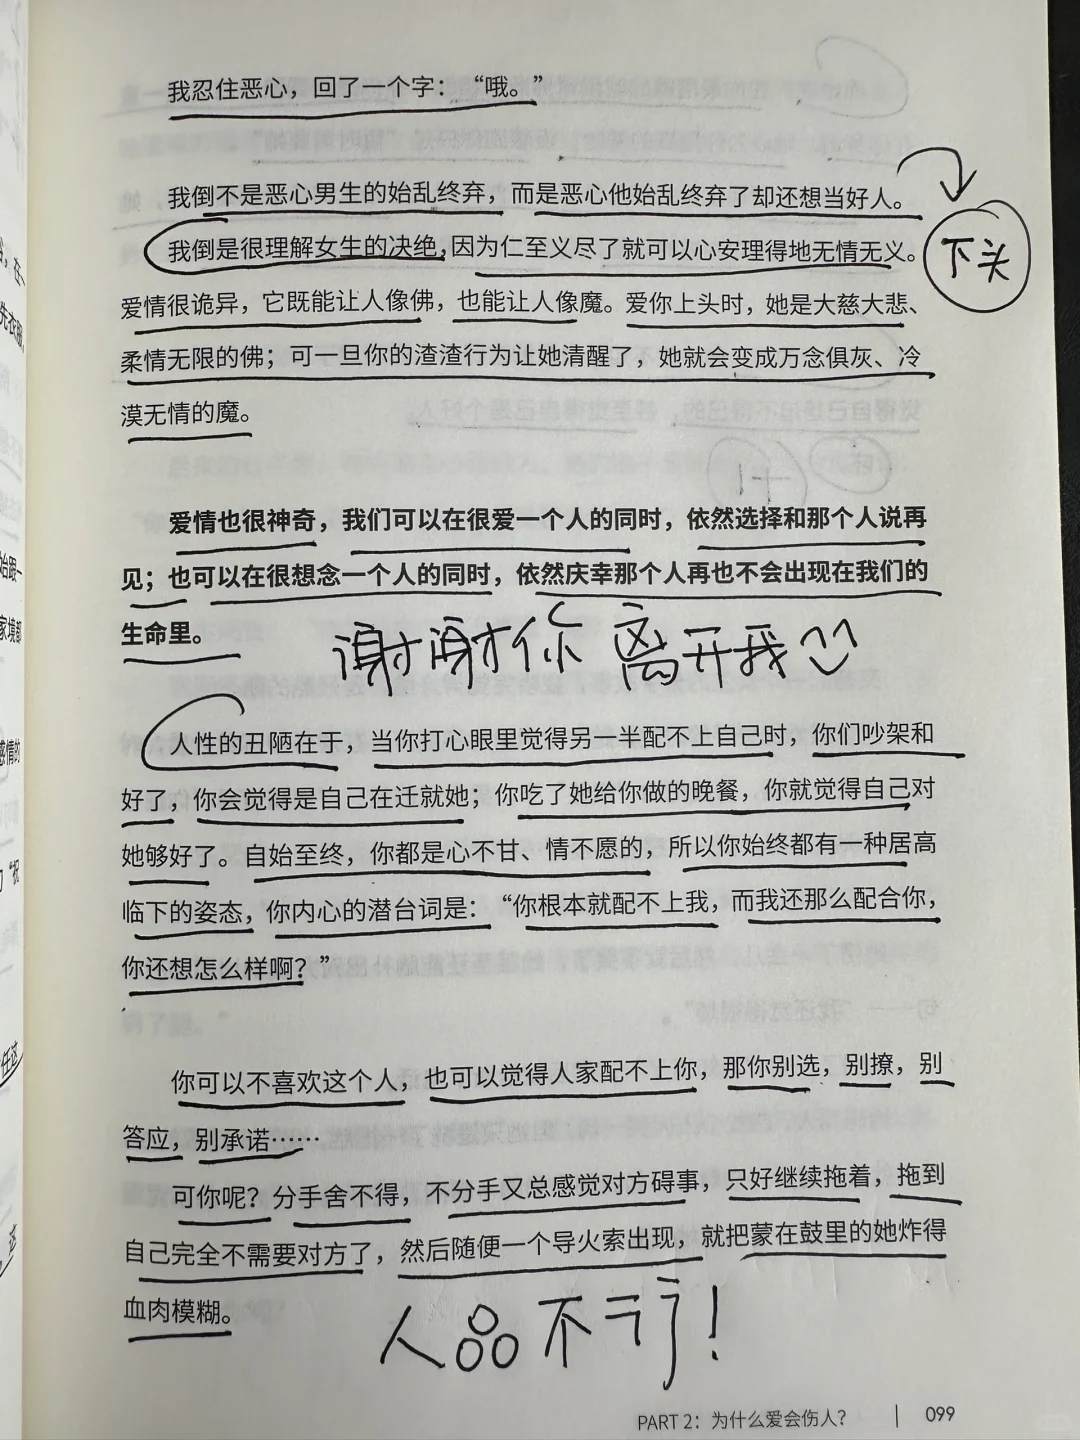 我忍住恶心，回了一个字：“哦。”
我倒不是恶心男生的始乱终弃，而是恶心他始乱终弃了却还想当好人。
我倒是很理解女生的决绝，因为仁至义尽了就可以心安理得地无情无义。
下头
爱情很诡异，它既能让人像佛，也能让人像魔。爱你上头时，她是大慈大悲、
柔情无限的佛；可一旦你的渣渣行为让她清醒了，她就会变成万念俱灰、冷
漠无情的魔。
爱情也很神奇，我们可以在很爱一个人的同时，依然选择和那个人说再
见；也可以在很想念一个人的同时，依然庆幸那个人再也不会出现在我们的
生命里。
谢谢你离开我
人性的丑陋在于，当你打心眼里觉得另一半配不上自己时，你们吵架和
好了，你会觉得是自己在迁就她；你吃了她给你做的晚餐，你就觉得自己对
她够好了。自始至终，你都是心不甘、情不愿的，所以你始终都有一种居高
临下的姿态，你内心的潜台词是：“你根本就配不上我，而我还那么配合你，
你还想怎么样啊？”
你可以不喜欢这个人，也可以觉得人家配不上你，那你别选，别撩，别
答应，别承诺……
可你呢？分手舍不得，不分手又总感觉对方碍事，只好继续拖着，拖到
自己完全不需要对方了，然后随便一个导火索出现，就把蒙在鼓里的她炸得
血肉模糊。
人品不行！
PART 2：为什么爱会伤人？ | 099